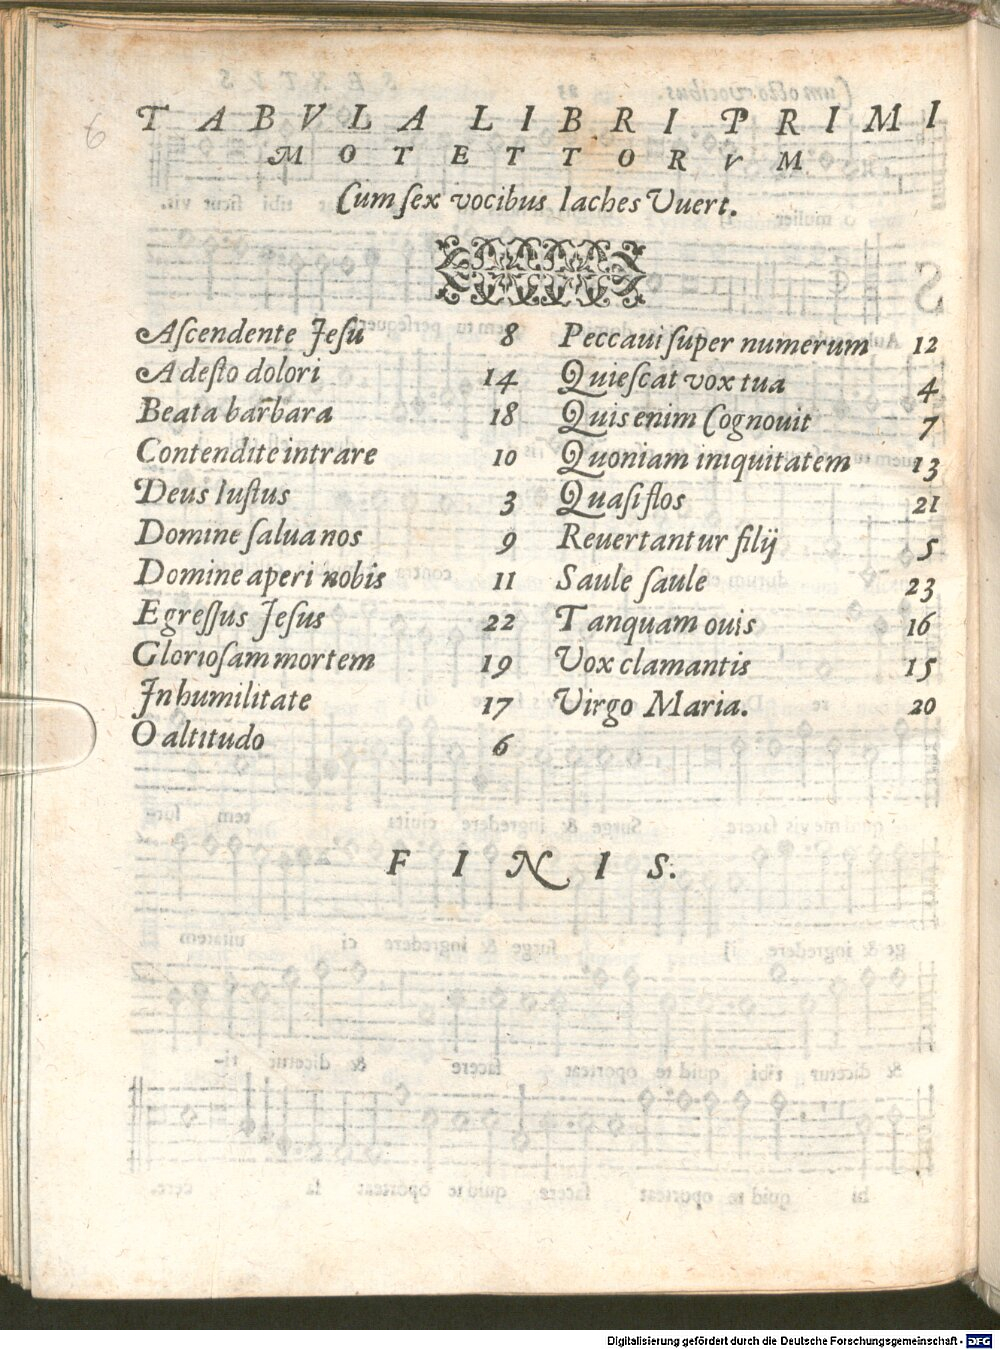 6
TABVLA LIBRI PRIMI
MOTETTORVM
Cum sex vocibus Iaches Vuert.
Ascendente Jesu 8
Adesto dolori 14
Beata barbara 18
Contendite intrare 10
Deus Iustus 3
Domine salua nos 9
Domine aperi nobis 11
Egressus Jesus 22
Gloriosam mortem 19
In humilitate 17
O altitudo 6
Peccaui super numerum 12
Quiescat vox tua 4
Quis enim Cognouit 7
Quoniam iniquitatem 13
Quasi flos 21
Reuertantur filij 5
Saule saule 23
Tanquam ouis 16
Vox clamantis 15
Virgo Maria. 20
FINIS.
Digitalisierung gefördert durch die Deutsche Forschungsgemeinschaft - DFG